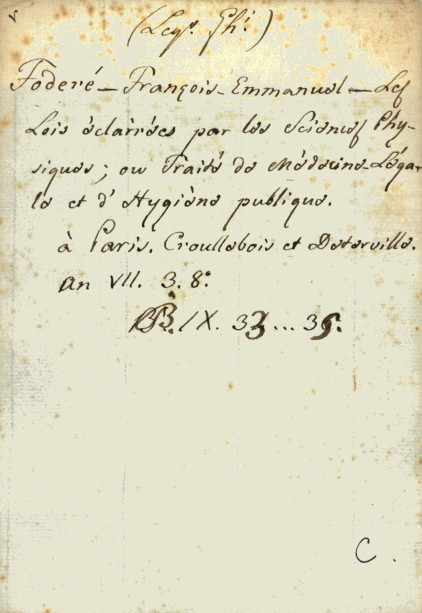 (Legs. Ghi.)
Foderé — François-Emmanuel — Les
Lois éclairées par les Sciences Phy-
siques; ou Traité de Médecine-Léga-
le et d'Hygiène publique.
à Paris. Croullebois et Deterville.
an VII. 3. 8.°
BB. IX. 33...35.
C.